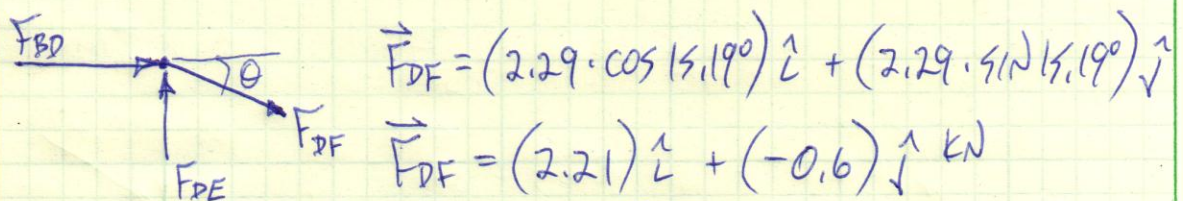 F_BD
θ
F_DF
F_DE
F⃗_DF = (2.29 · cos 15.19°) î + (2.29 · SIN 15.19°) ĵ
F⃗_DF = (2.21) î + (-0.6) ĵ kN